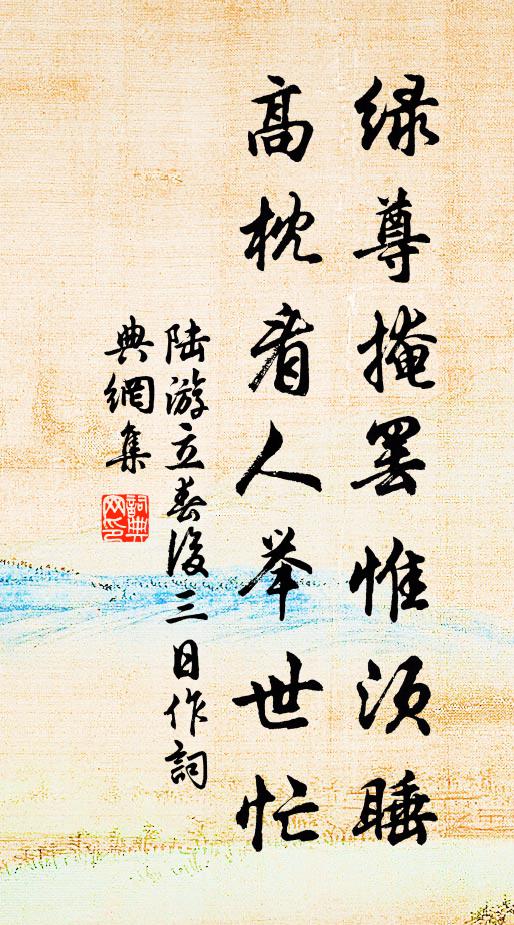 绿尊掩罢惟须睡
高枕看人举世忙
陆游立春後三日作詞
典網集
詞典网印